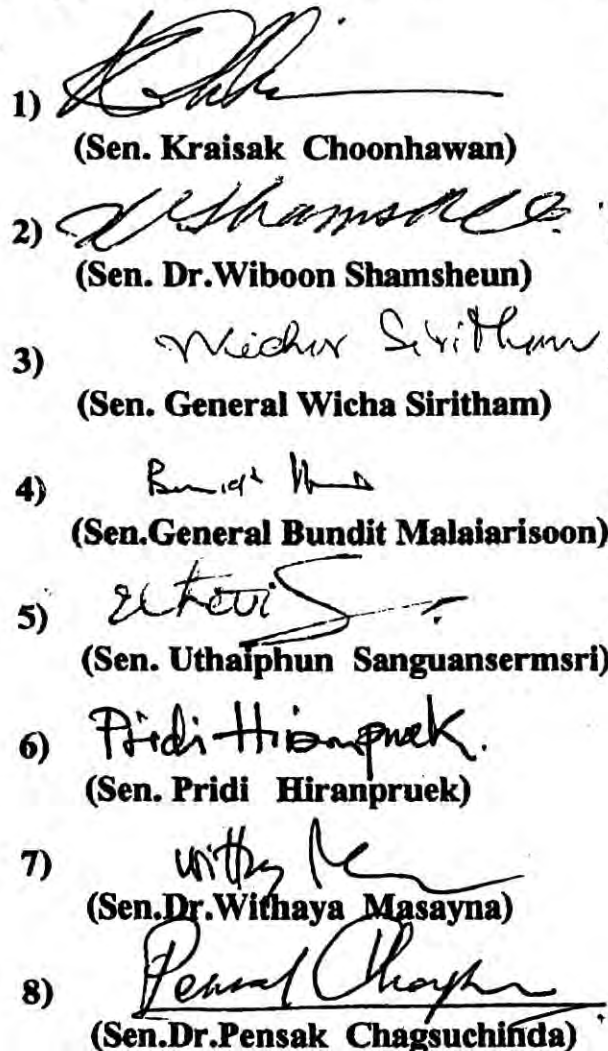 1)
(Sen. Kraisak Choonhawan)
2)
(Sen. Dr.Wiboon Shamsheun)
3)
(Sen. General Wicha Siritham)
4)
(Sen.General Bundit Malaiarisoon)
5)
(Sen. Uthaiphun Sanguansermsri)
6) Pridi Hiranpruek.
(Sen. Pridi Hiranpruek)
7)
(Sen.Dr.Withaya Masayna)
8) Pensak
(Sen.Dr.Pensak Chagsuchinda)